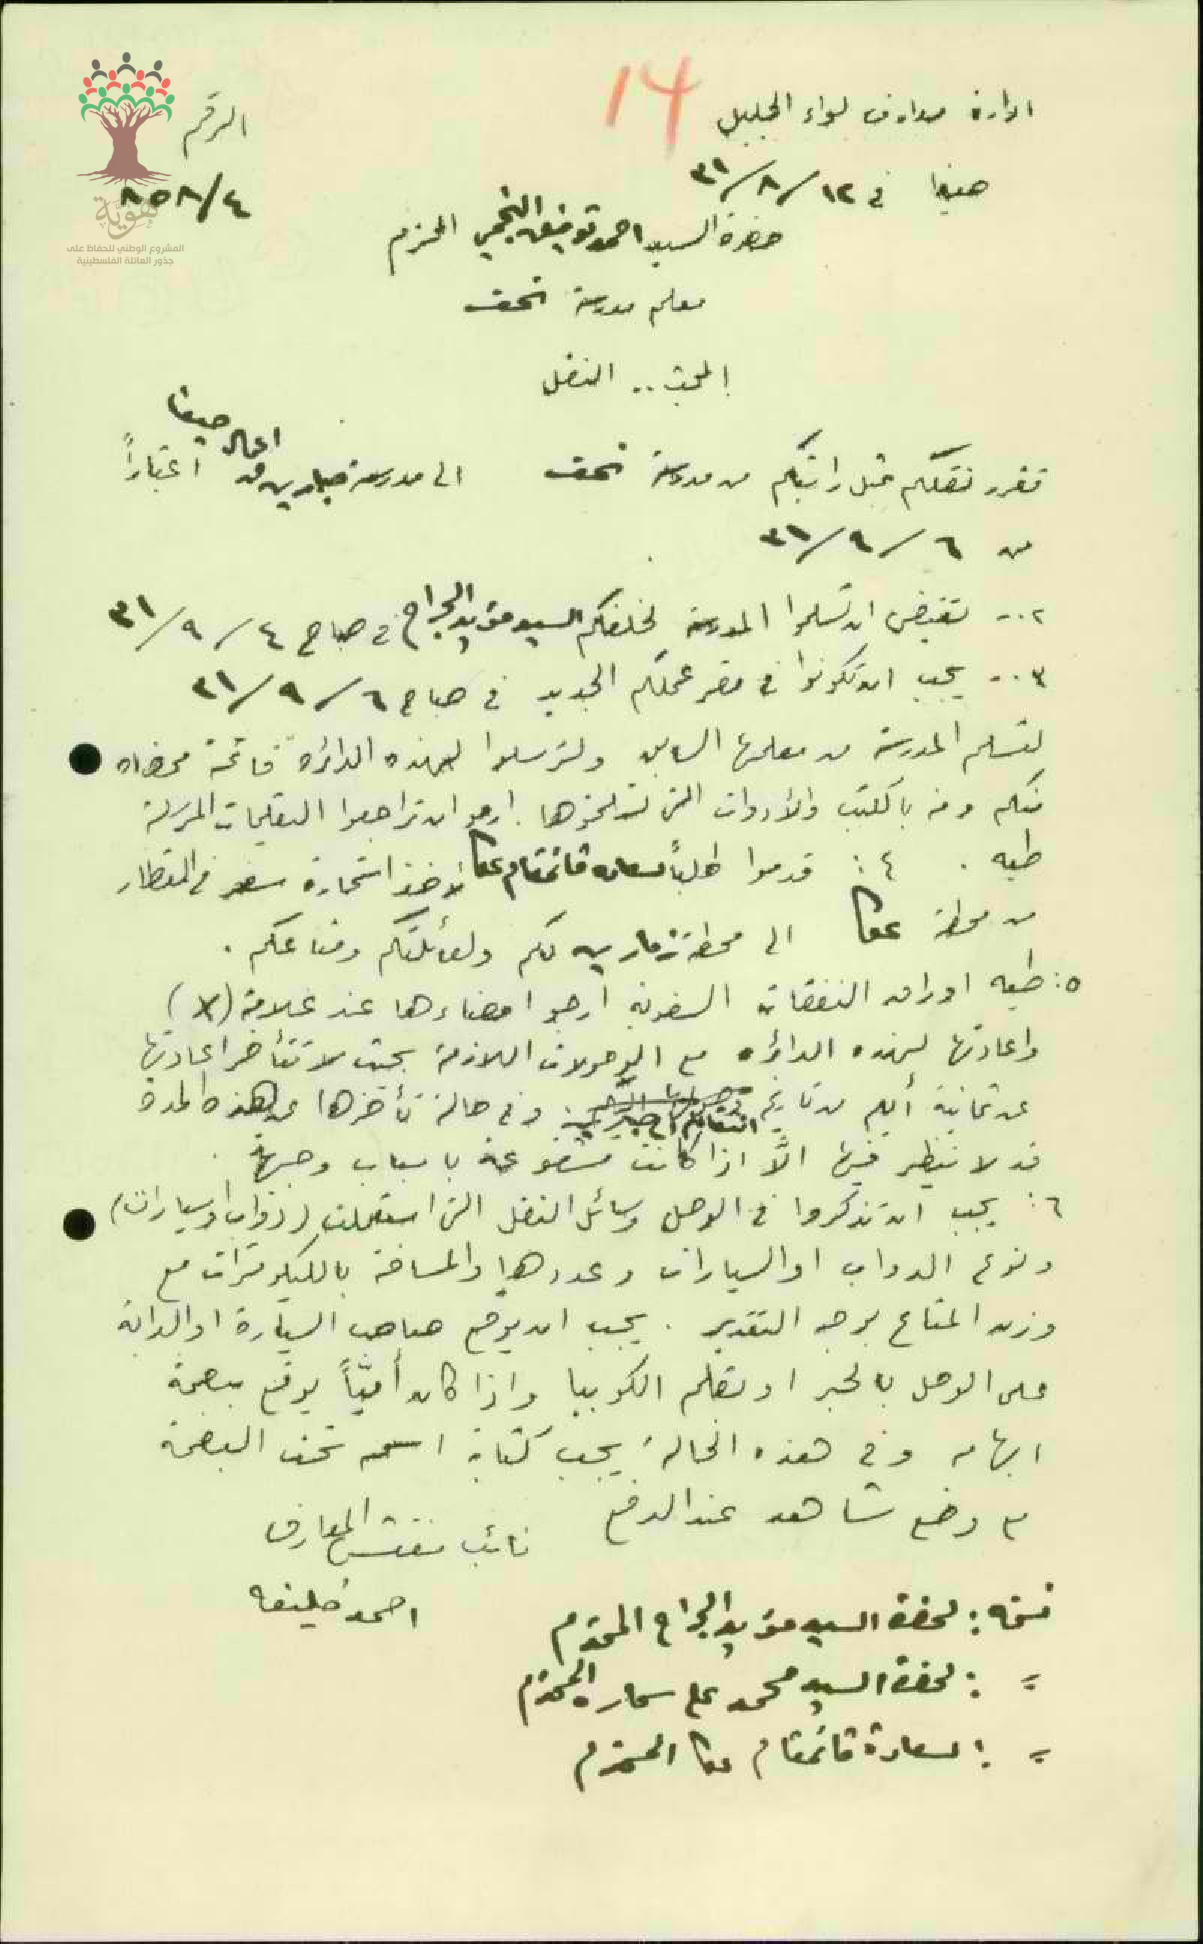 14
ادارة معارف لواء الجليل
الرقم
حيفا في ١٢/٨/٣١
٨٥٨/٤
هوية
المشروع الوطني للحفاظ على
جذور العائلة الفلسطينية
حضرة السيد احمد توفيق النجمي المحترم
معلم مدرسة نحف
المبحث .. النقل
تقرر نقلكم قبل راتبكم من مدرسة نحف الى مدرسة صبارين من اعمال حيفا اعتباراً
من ٦/٩/٣١
٢.. تقتضي ان تسلموا المدرسة لخلفكم السيد مؤيد الجراح في صباح ٤/٩/٣١
٣.. يجب ان تكونوا في مقر عملكم الجديد في صباح ٦/٩/٣١
لتسلم المدرسة من معلمها السابق ولترسلوا لهذه الدائرة قائمة ممضاه
منكم ومنه بالكتب والأدوات التي تستلموها. ارجو ان تراجعوا التعليمات المرسلة
طيه . ٤: قدموا طلباً لسعادة قائمقام عكا لأخذ استمارة سفر في القطار
من محطة عكا الى محطة زمارين لكم ولعائلتكم ومتاعكم .
٥: طيه اوراق النفقات السفرية ارجو امضاءها عند علامة (X)
واعادتها لهذه الدائره مع الوصولات اللازمة بحيث لا تتأخر اعادتها
عن ثمانية أيام من تاريخ انتقالكم وفي حالة تأخرها عن هذه المدة
قد لا ينظر فيها الاّ اذا كانت مشفوعة باسباب وجيهة .
٦: يجب ان تذكروا في الوصل وسائل النقل التي استعملت (دواب او سيارات)
ونوع الدواب او السيارات وعددها والمسافة بالكيلومترات مع
وزن المتاع بوجه التقدير . يجب ان يوقع صاحب السيارة او الدابة
على الوصل بالحبر او بقلم الكوبيا واذا كان أميّاً يوقع ببصمة
ابهامه وفي هذه الحالة يجب كتابة اسمه تحت البصمة
مع وضع شاهد عند الدفع
نائب مفتش المعارف
احمد خليفه
نسخه : لحضرة السيد مؤيد الجراح المحترم
= : لحضرة السيد محمد علي سماره المحترم
= : لسعادة قائمقام عكا المحترم